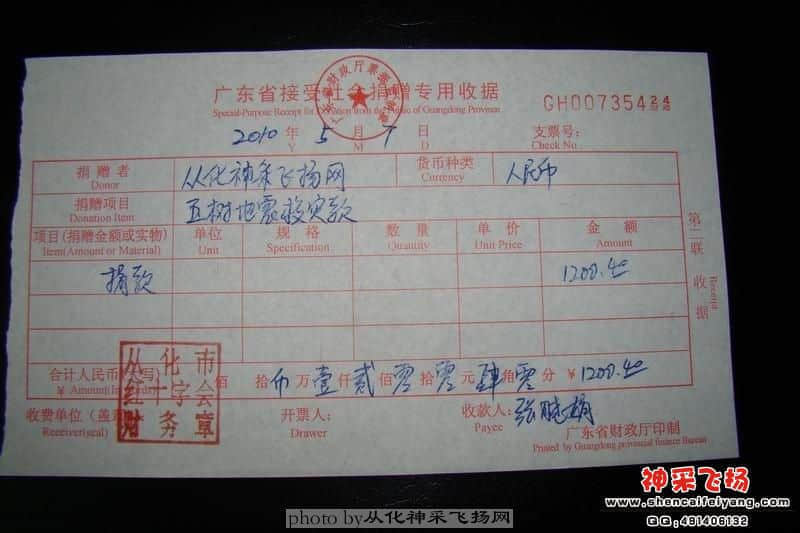 广东省接受社会捐赠专用收据
Special-Purpose Receipt for Donation from the Public of Guangdong Province
GH00735424
广东省财政厅票据监制章
2010 年 5 月 7 日 支票号:
Y M D Check No
捐赠者 从化神采飞扬网 货币种类 人民币
Donor Currency
捐赠项目 玉树地震救灾款
Donation Item
项目(捐赠金额或实物) 单位 规格 数量 单价 金额
Item(Amount or Material) Unit Specification Quantity Unit Price Amount
捐款 1208.40
合计人民币(大写) 佰 拾 币 万 壹 仟 贰 佰 零 拾 零 元 肆 角 零 分 ¥ 1208.40
¥ Amount(In words)
收费单位(盖章) 开票人: 收款人:
Receiver(seal) Drawer Payee
从化市
红十字会
财务章
广东省财政厅印制
Printed by Guangdong provincial finance Bureau
第二联 收据
Receipt
神采飞扬
www.shencaifeiyang.com
QQ:481406132
photo by从化神采飞扬网